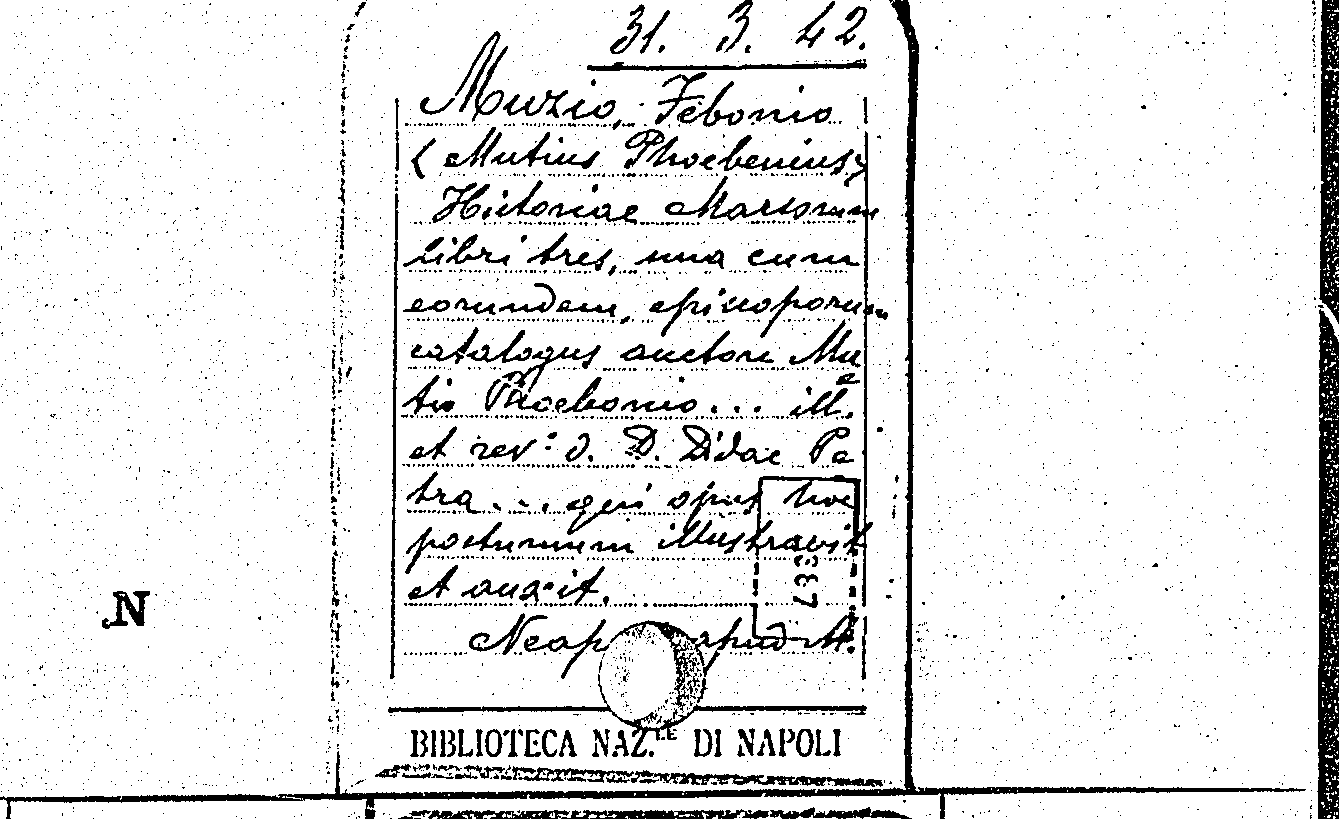 31. 3. 42.
Muzio, Febonio
(Mutius Phoebenius)
Historiae Marsorum
libri tres, una cum
eorundem, episcoporum
catalogus auctore Mu
tio Phoebonio... ill.e
et rev: d. D. Didac Pe
tra... qui opus hoc
postumum illustravit
et auxit.
Neap apud M.
337
BIBLIOTECA NAZ.LE DI NAPOLI
N